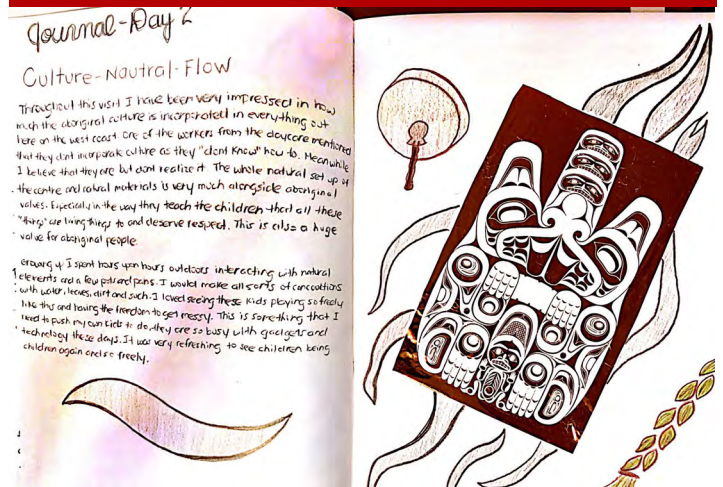 Journal-Day 2
Culture-Nautral-Flow
Throughout this visit I have been very impressed in how
much the aboriginal culture is incorporated in everything out
here on the west coast. One of the workers from the daycare mentioned
that they dont incorporate culture as they "dont Know" how to. Meanwhile
I believe that they are but dont realize it. The whole natural set up of
the centre and natural materials is very much alongside aboriginal
values. Especially in the way they teach the children that all these
"things" are living things to and deserve respect. This is also a huge
value for aboriginal people.
Growing up I spent hours upon hours outdoors interacting with natural
elements and a few pots and pans. I would make all sorts of concoctions
with water, leaves, dirt and such. I loved seeing these kids playing so freely
like this and having the freedom to get messy. This is something that I
need to push my own kids to do, they are so busy with gadgets and
technology these days. It was very refreshing to see children being
children again and so freely.